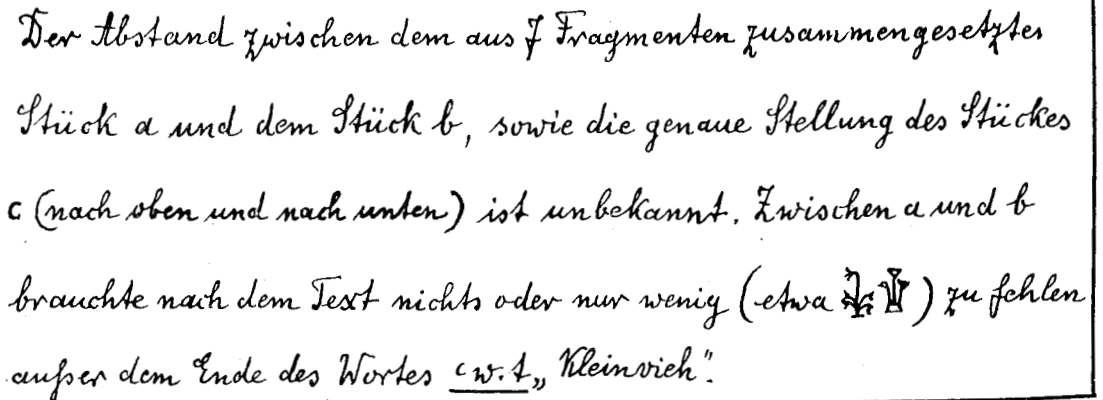 Der Abstand zwischen dem aus 7 Fragmenten zusammengesetzten
Stück a und dem Stück b, sowie die genaue Stellung des Stückes
c (nach oben und nach unten) ist unbekannt. Zwischen a und b
brauchte nach dem Text nichts oder nur wenig (etwa ) zu fehlen
außer dem Ende des Wortes cw.t „Kleinvieh“.